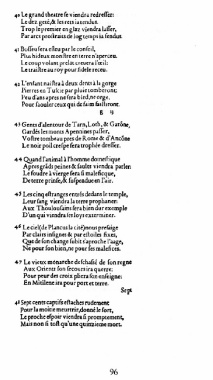 40 Le grand theatre se viendra redresser:
Le dez geté,& les rets ia tendus.
Trop le premier en glaz viendra lasser,
Par arcs prostraits de log temps ia fendus.
41 Bossu sera esleu par le conseil,
Plus hideux monstre en terre n'aperceu.
Le coup volant prelat creuera l'œil:
Le traistre au roy pour fidele receu.
42 L'enfant naistra à deux dents à la gorge
Pierres en Tuscie par pluie tomberont:
Peu d'ans apres ne sera bled, ne orge,
Pour saouler ceux qui de faim failliront.
43 Gents d'alentour de Tarn, Loth, & Garōne,
Gardés les monts Apennines passer,
Vostre tombeau pres de Rome & d'Ancōne
Le noir poil crespe fera trophée dresser.
44 Quand l'animal à l'homme domestique
Apres grāds peines & saults viendra parler:
Le fouldre à vierge sera si malefique,
De terre prinse, & suspendue en l'air.
45 Les cinq estranges entrés dedans le temple,
Leur sang viendra la terre prophaner:
Aux Thoulousains sera bien dur exemple
D'un qui viendra ses loys exterminer.
46 Le ciel (de Plancus la cité) nous presaige
Par clairs insignes & par estoiles fixes,
Que de son change subit s'aproche l'aage,
Ne pour son bien, ne pour ses malefices.
47 Le vieux monarche deschassé de son regne
Aux Orients son secours ira querre:
Pour peur des croix pliera son enseigne:
En Mitilene ira pour port & terre.
48 Sept cents captifs estachés rudement
Pour la moitie meurtrir, donné le sort,
Le proche espoir viendra si promptement,
Mais non si tost qu'une quinziesme mort.
96